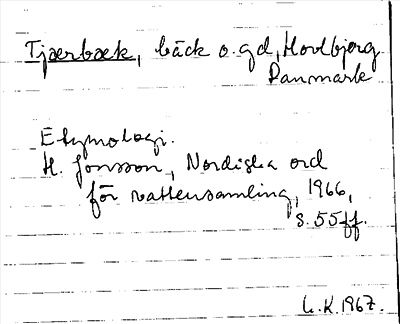 Tjærbæk, bäck o. gd, Hovlbjerg
Danmark
Etymologi.
H. Jonsson, Nordiska ord
för vattensamling, 1966,
s. 55ff.
L.K. 1967.